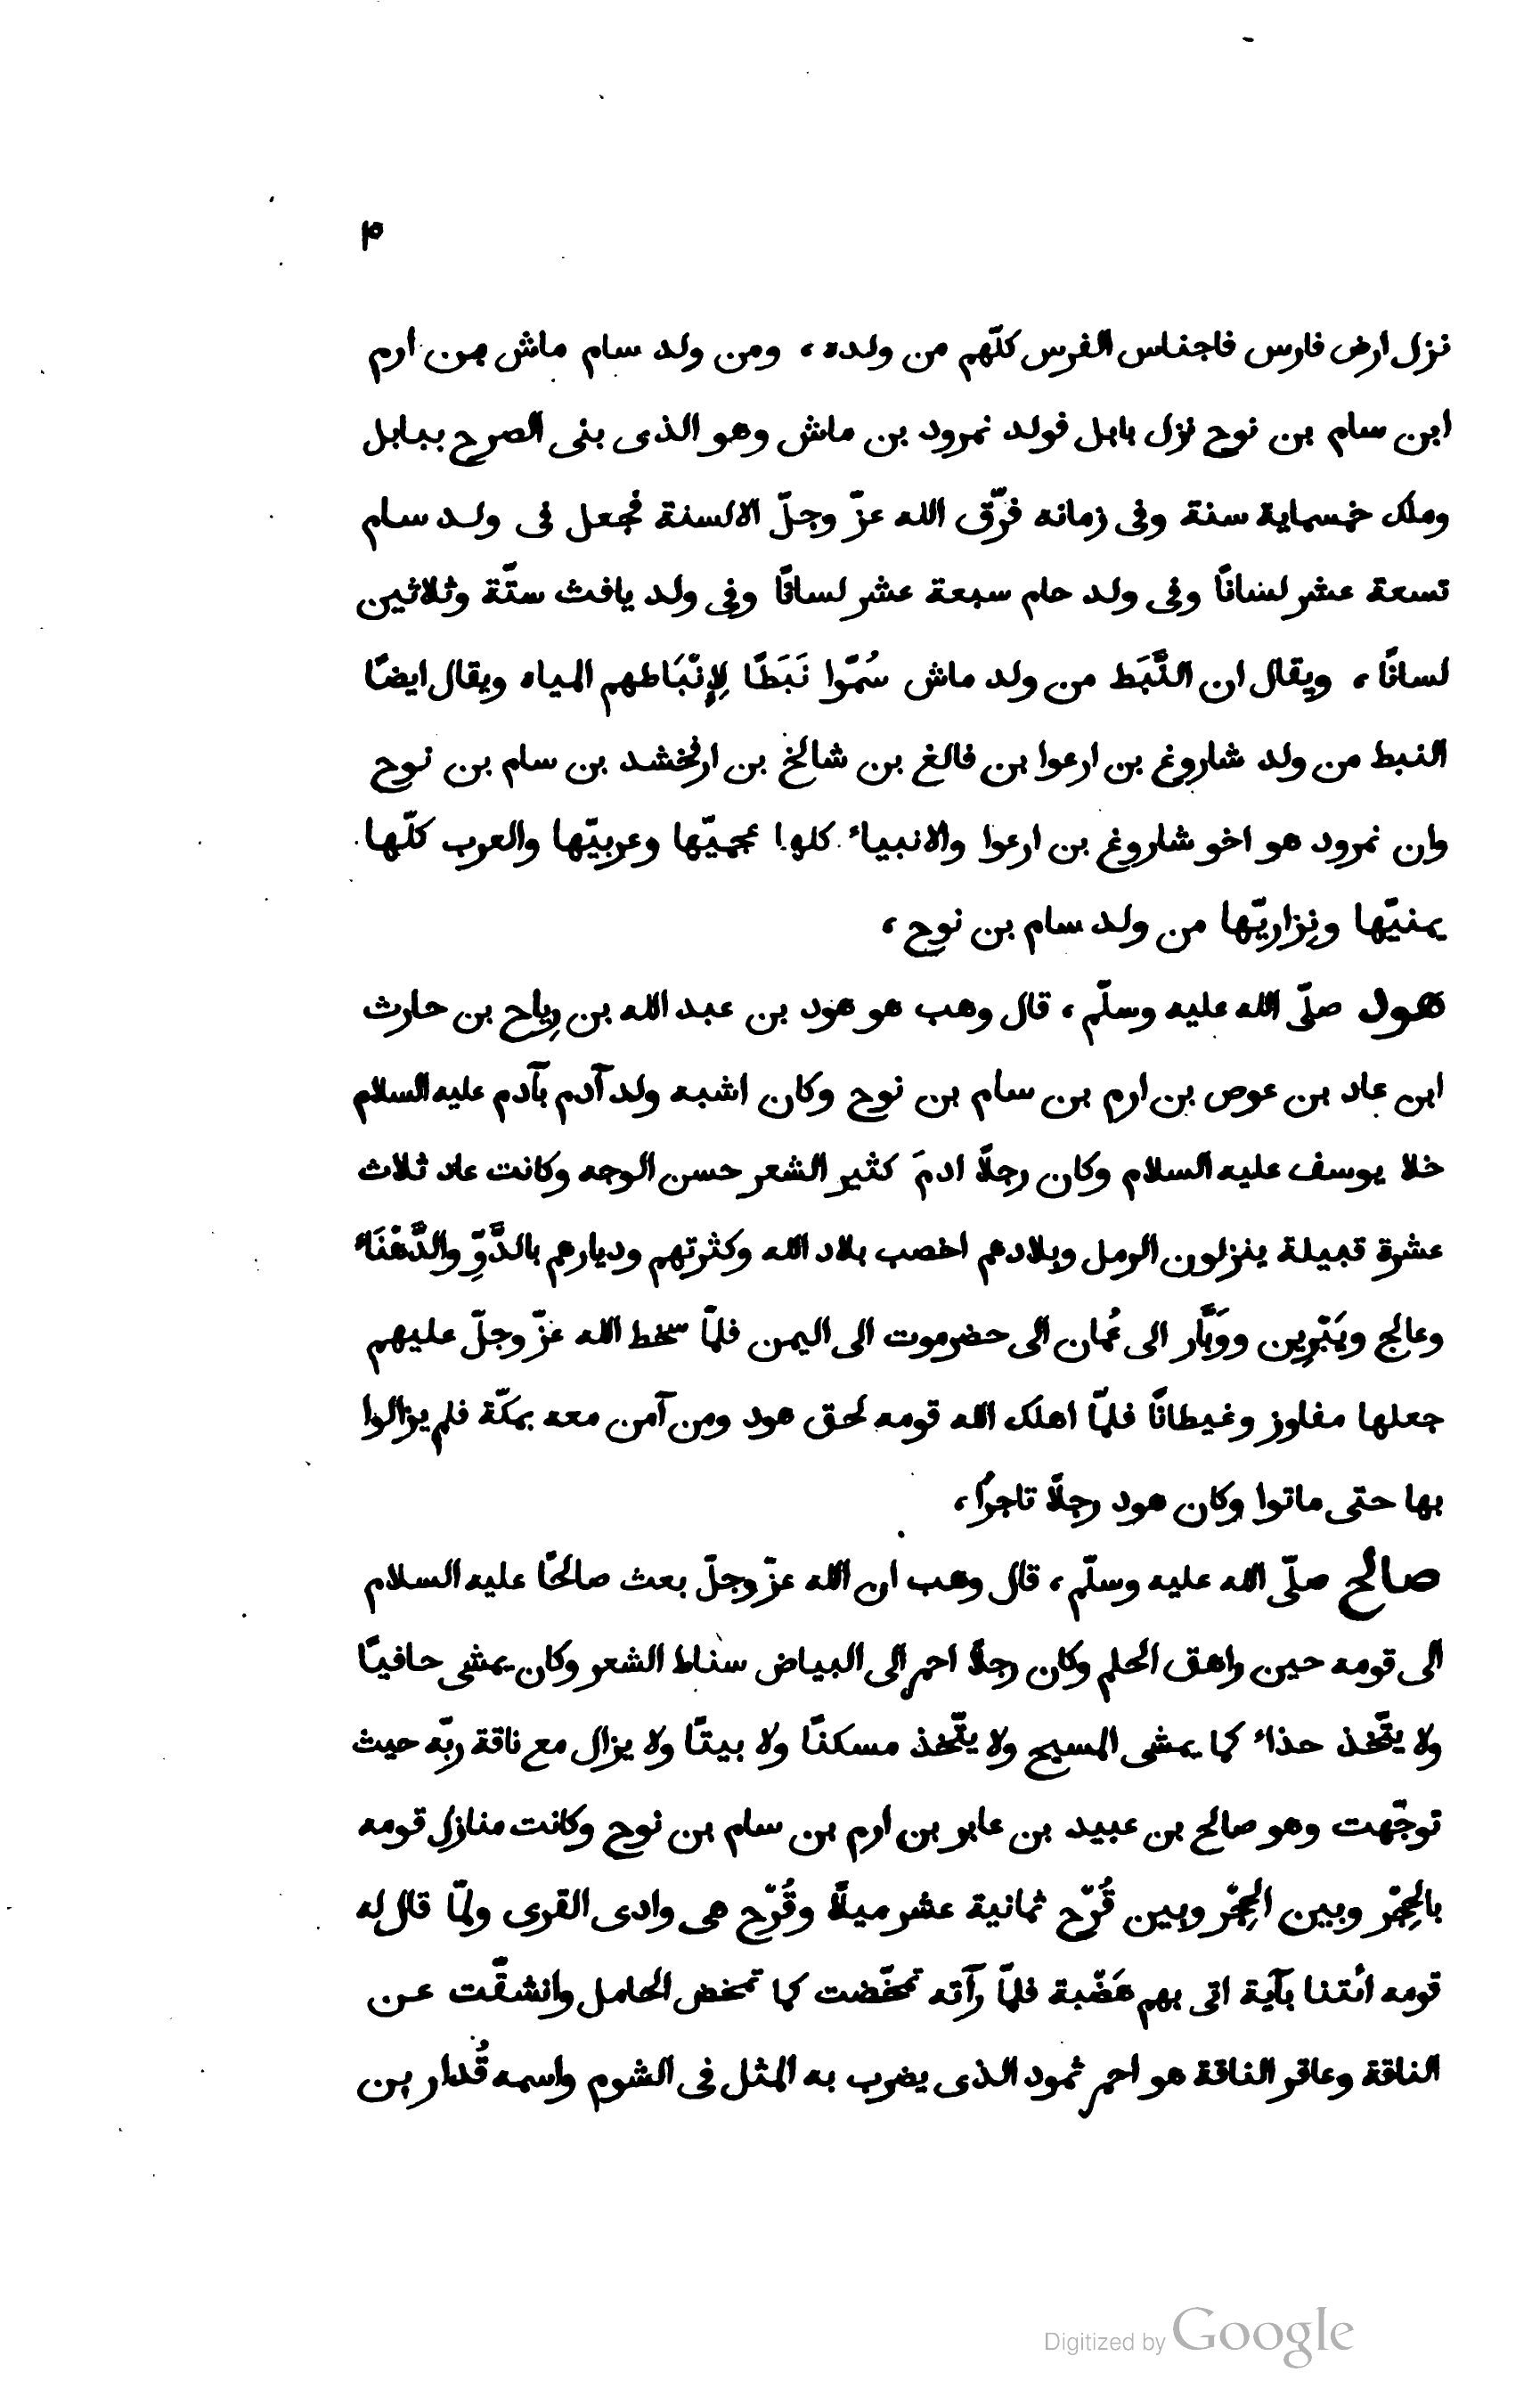 ١٤
نزل ارض فارس فاجناس الفرس كلّهم من ولده، ومن ولد سام ماش بن ارم
ابن سام بن نوح نزل بابل فولد نمرود بن ماش وهو الذى بنى الصرح ببابل
وملك خمسماية سنة وفى زمانه فرّق الله عزّ وجلّ الالسنة فجعل فى ولد سام
تسعة عشر لسانًا وفى ولد حام سبعة عشر لسانًا وفى ولد يافث ستّة وثلاثين
لسانًا، ويقال ان النَّبَط من ولد ماش سُمّوا نَبَطًا لِإنْبَاطهم المياه ويقال ايضًا
النبط من ولد شاروغ بن ارعوا بن فالغ بن شالخ بن ارفخشد بن سام بن نوح
وان نمرود هو اخو شاروغ بن ارعوا والانبياء كلها عجميّها وعربيّها والعرب كلّها
يمنيّها ونِزاريّها من ولد سام بن نوح،
هود صلّى الله عليه وسلّم، قال وهب هو هود بن عبد الله بن رِياح بن حارث
ابن عاد بن عوص بن ارم بن سام بن نوح وكان اشبه ولد آدم بآدم عليه السلام
خلا يوسف عليه السلام وكان رجلًا ادمَ كثير الشعر حسن الوجه وكانت عاد ثلاث
عشرة قبيلة ينزلون الرمل وبلادهم اخصب بلاد الله وكثرتهم وديارهم بالدَّوِّ والدَّهْنَاء
وعالج ويَبْرِين ووَبَار الى عُمان الى حضرموت الى اليمن فلمّا سخط الله عزّ وجلّ عليهم
جعلها مفاوز وغيطانًا فلمّا اهلك الله قومه لحق هود ومن آمن معه بمكّة فلم يزالوا
بها حتى ماتوا وكان هود رجلًا تاجرًا،
صالح صلّى الله عليه وسلّم، قال وهب ان الله عزّ وجلّ بعث صالحًا عليه السلام
الى قومه حين راهق الحلم وكان رجلًا احمر الى البياض سناط الشعر وكان يمشى حافيًا
ولا يتّخذ حذاء كما يمشى المسيح ولا يتّخذ مسكنًا ولا بيتًا ولا يزال مع ناقة ربّه حيث
توجّهت وهو صالح بن عبيد بن عابر بن ارم بن سام بن نوح وكانت منازل قومه
بالحِجْر وبين الحِجْر وبين قُرْح ثمانية عشر ميلًا وقُرْح هى وادى القرى ولمّا قال له
قومه ائتنا بآية اتى بهم هَضْبة فلمّا رآته تمخّضت كما تمخض الحامل وانشقّت عن
الناقة وعاقر الناقة هو احمر ثمود الذى يضرب به المثل فى الشوم واسمه قُدار بن
Digitized by Google